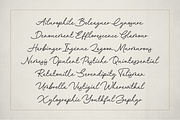 Ailurophile Bolengner Cynosure
Denouement Effluorescence Glamour
Harbinger Ingenue Lagoon Murmurous
Nemesis Opulent Pastiche Quintessential
Ratatouille Serendipity Talisman
Umbrella Vestigial Wherewithal
Xylographic Youthful Zephyr